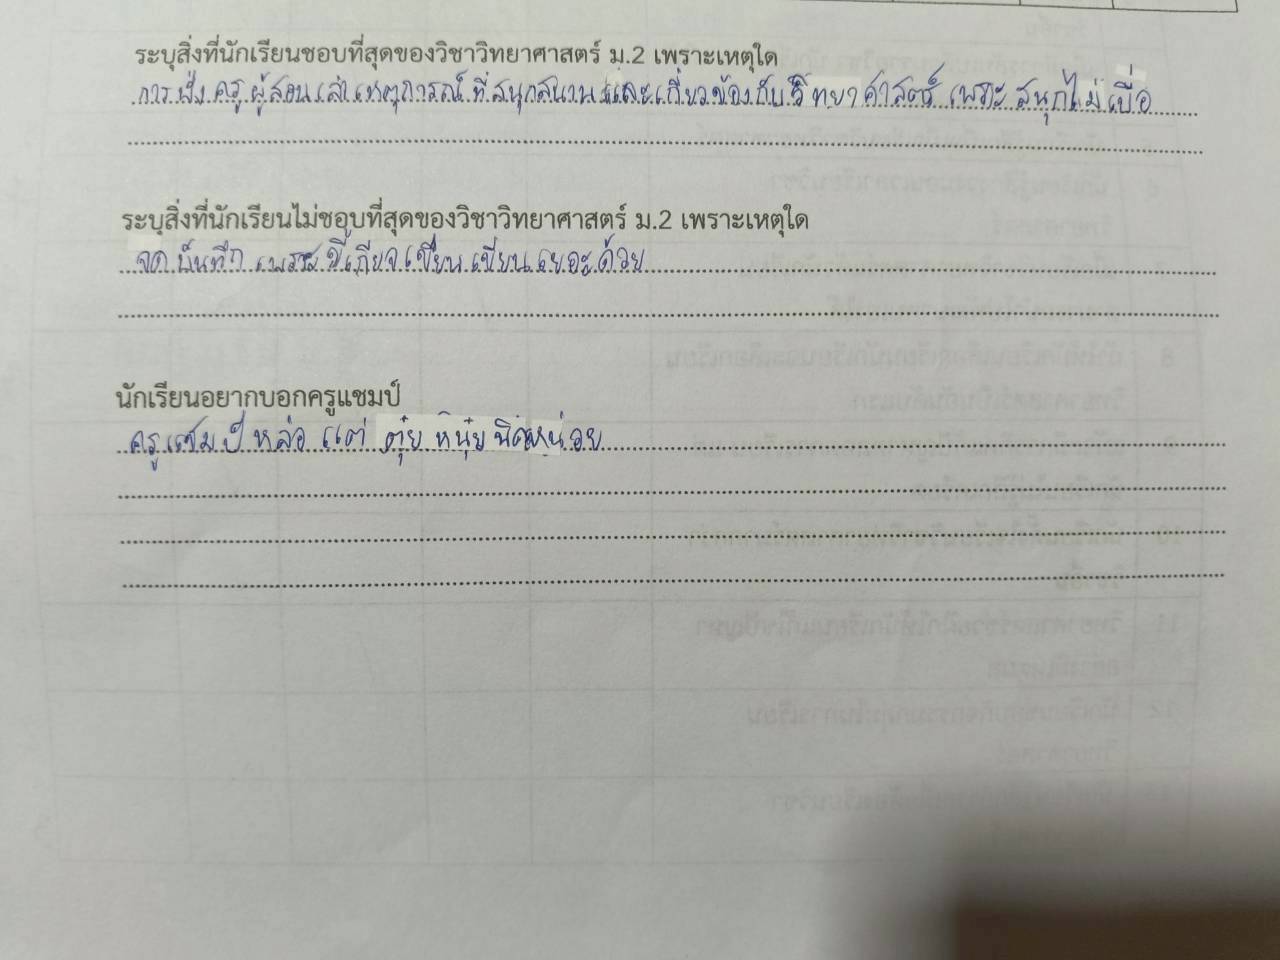 ระบุสิ่งที่นักเรียนชอบที่สุดของวิชาวิทยาศาสตร์ ม.2 เพราะเหตุใด
การฟังครูผู้สอนเล่าเหตุการณ์ที่สนุกสนานและเกี่ยวข้องกับวิทยาศาสตร์ เพราะสนุกไม่เบื่อ
ระบุสิ่งที่นักเรียนไม่ชอบที่สุดของวิชาวิทยาศาสตร์ ม.2 เพราะเหตุใด
จดบันทึก เพราะขี้เกียจเขียน เขียนเยอะด้วย
นักเรียนอยากบอกครูแชมป์
ครูแชมป์หล่อ แต่ ตุ๋ยหนุ๋ยนิดหน่อย